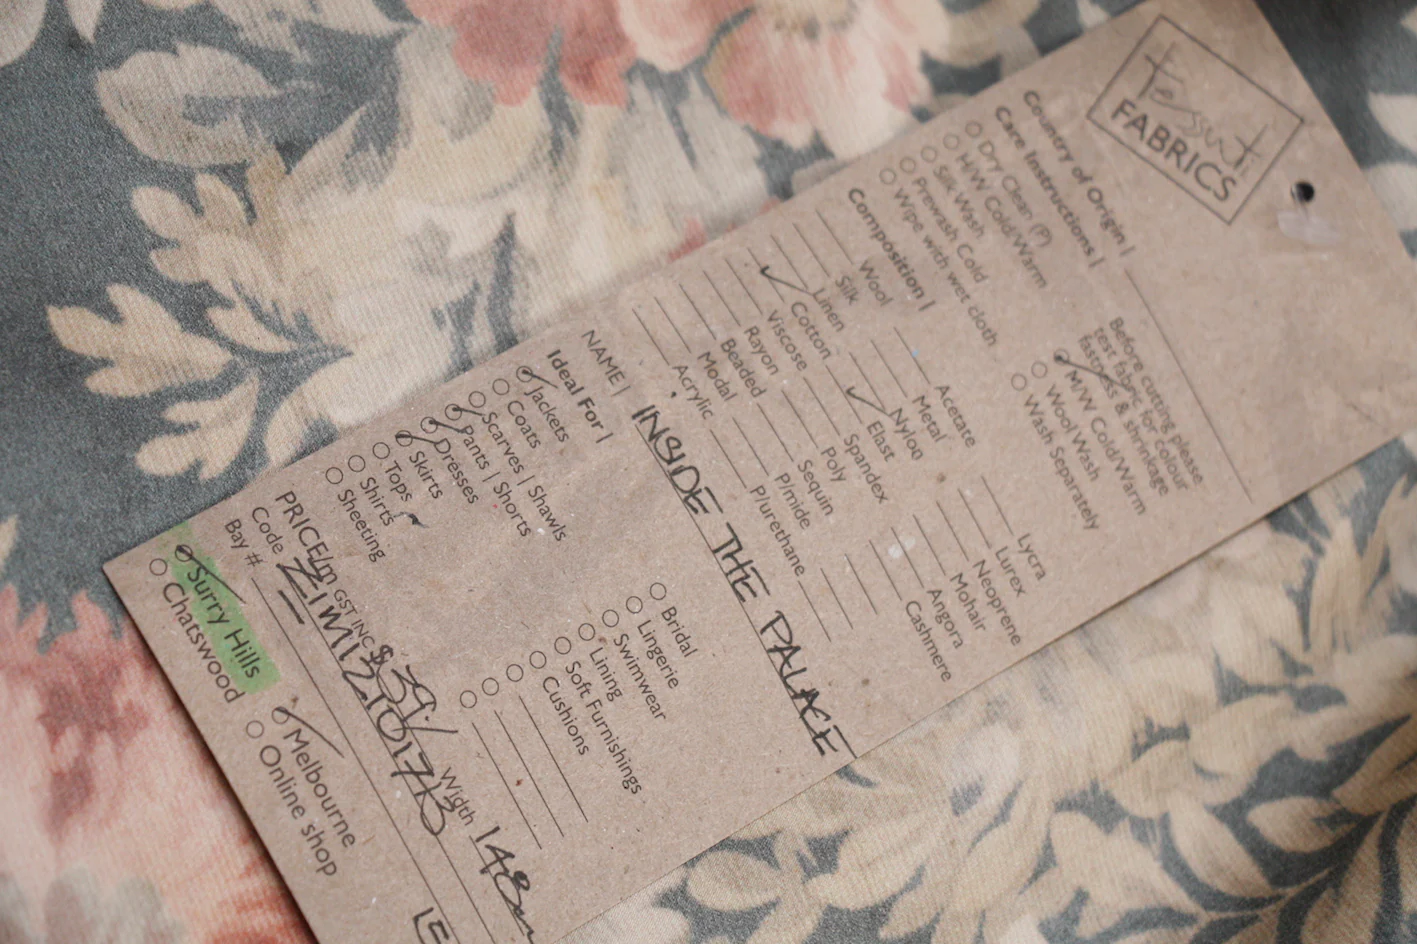 tessuti
FABRICS
Country of Origin |
Care Instructions |
Before cutting please
test fabric for colour
fastness & shrinkage
Dry Clean (P)
H/W Cold/Warm
Silk Wash
Prewash Cold
Wipe with wet cloth
M/W Cold/Warm
Wool Wash
Wash Separately
Composition |
Wool
Silk
Linen
Cotton
Viscose
Rayon
Beaded
Modal
Acrylic
Acetate
Metal
Nylon
Elast
Spandex
Poly
Sequin
P/mide
P/urethane
Lycra
Lurex
Neoprene
Mohair
Angora
Cashmere
NAME | INSIDE THE PALACE
Ideal For |
Jackets
Coats
Scarves | Shawls
Pants | Shorts
Dresses
Skirts
Tops
Shirts
Sheeting
Bridal
Lingerie
Swimwear
Lining
Soft Furnishings
Cushions
PRICE/m GST INC $39/ Width 148
Code
Bay #
Surry Hills
Chatswood
Melbourne
Online shop